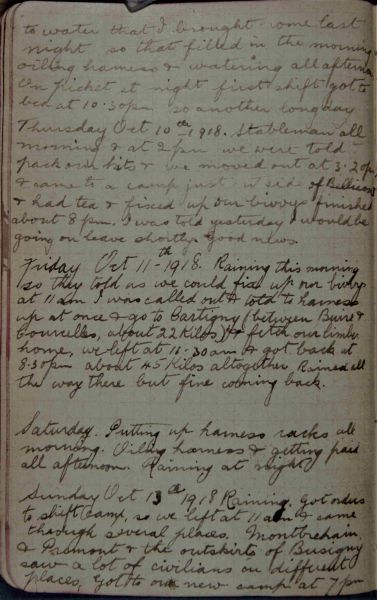 to water that I brought home last
night so that filled in the morning
oiling harness & watering all afternoon
On Picket at night first shift got to
bed at 10.30pm so another long day
Thursday Oct 10th 1918. Stableman all
morning & at 2pm we were told
pack our kits & we moved out at 3.20pm
& came to a camp just side of Bellicourt
& had tea & fixed up our bivvy finished
about 8pm. I was told yesterday I would be
going on leave shortly. Good news.
Friday Oct 11th 1918. Raining this morning
so they told us we could fix up our bivvy
at 11am I was called out & told to harness
up at once & go to Cartigny (between Buire &
Courcelles, about 22 Kilos) & fetch our limber
home, we left at 11.30am & got back at
8.30pm about 45 Kilos altogether, Rained all
the way there but fine coming back.
Saturday. Putting up harness racks all
morning. Oiling harness & getting paid
all afternoon. Raining at night.
Sunday Oct 13th 1918 Raining. Got orders
to shift camp, so we left at 11am & came
through several places, Montbrehain,
& Premont & the outskirts of Busigny
saw a lot of civilians in different
places, Got to our new camp at 7pm